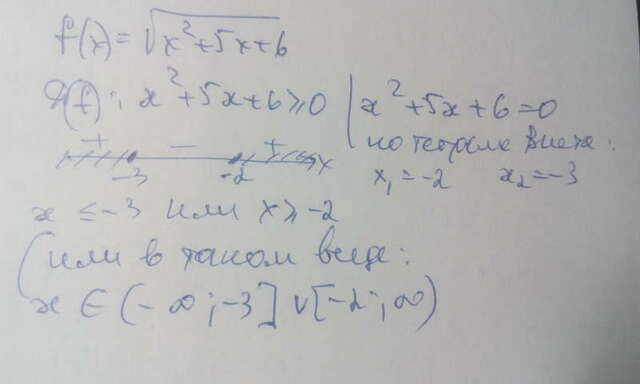 f(x) = √x²+5x+6
D(f): x²+5x+6≥0
x²+5x+6=0
по теореме Виета:
x₁=-2 x₂=-3
+ − +
-3 -2 x
x ≤ -3 или x ≥ -2
(или в таком виде:
x ∈ (-∞; -3] ∪ [-2; ∞)